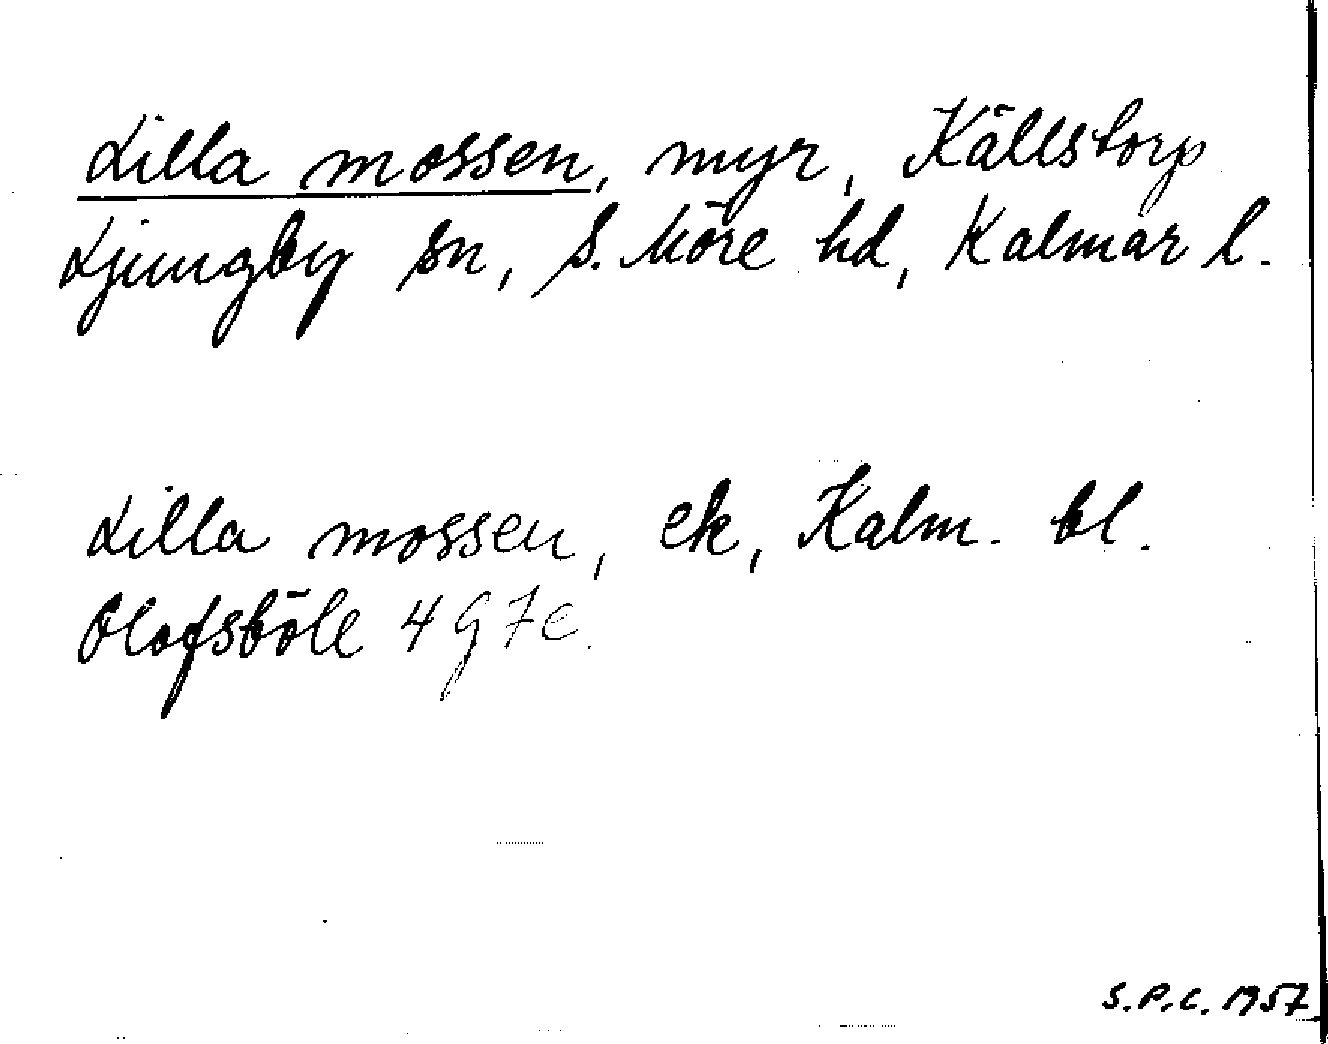 Lilla mossen, myr, Källstorp
Ljungby sn, S. Möre hd, Kalmar l.
Lilla mossen, ek, Kalm. bl.
Olofsböle 4 G 7e.
S.P.C. 1957